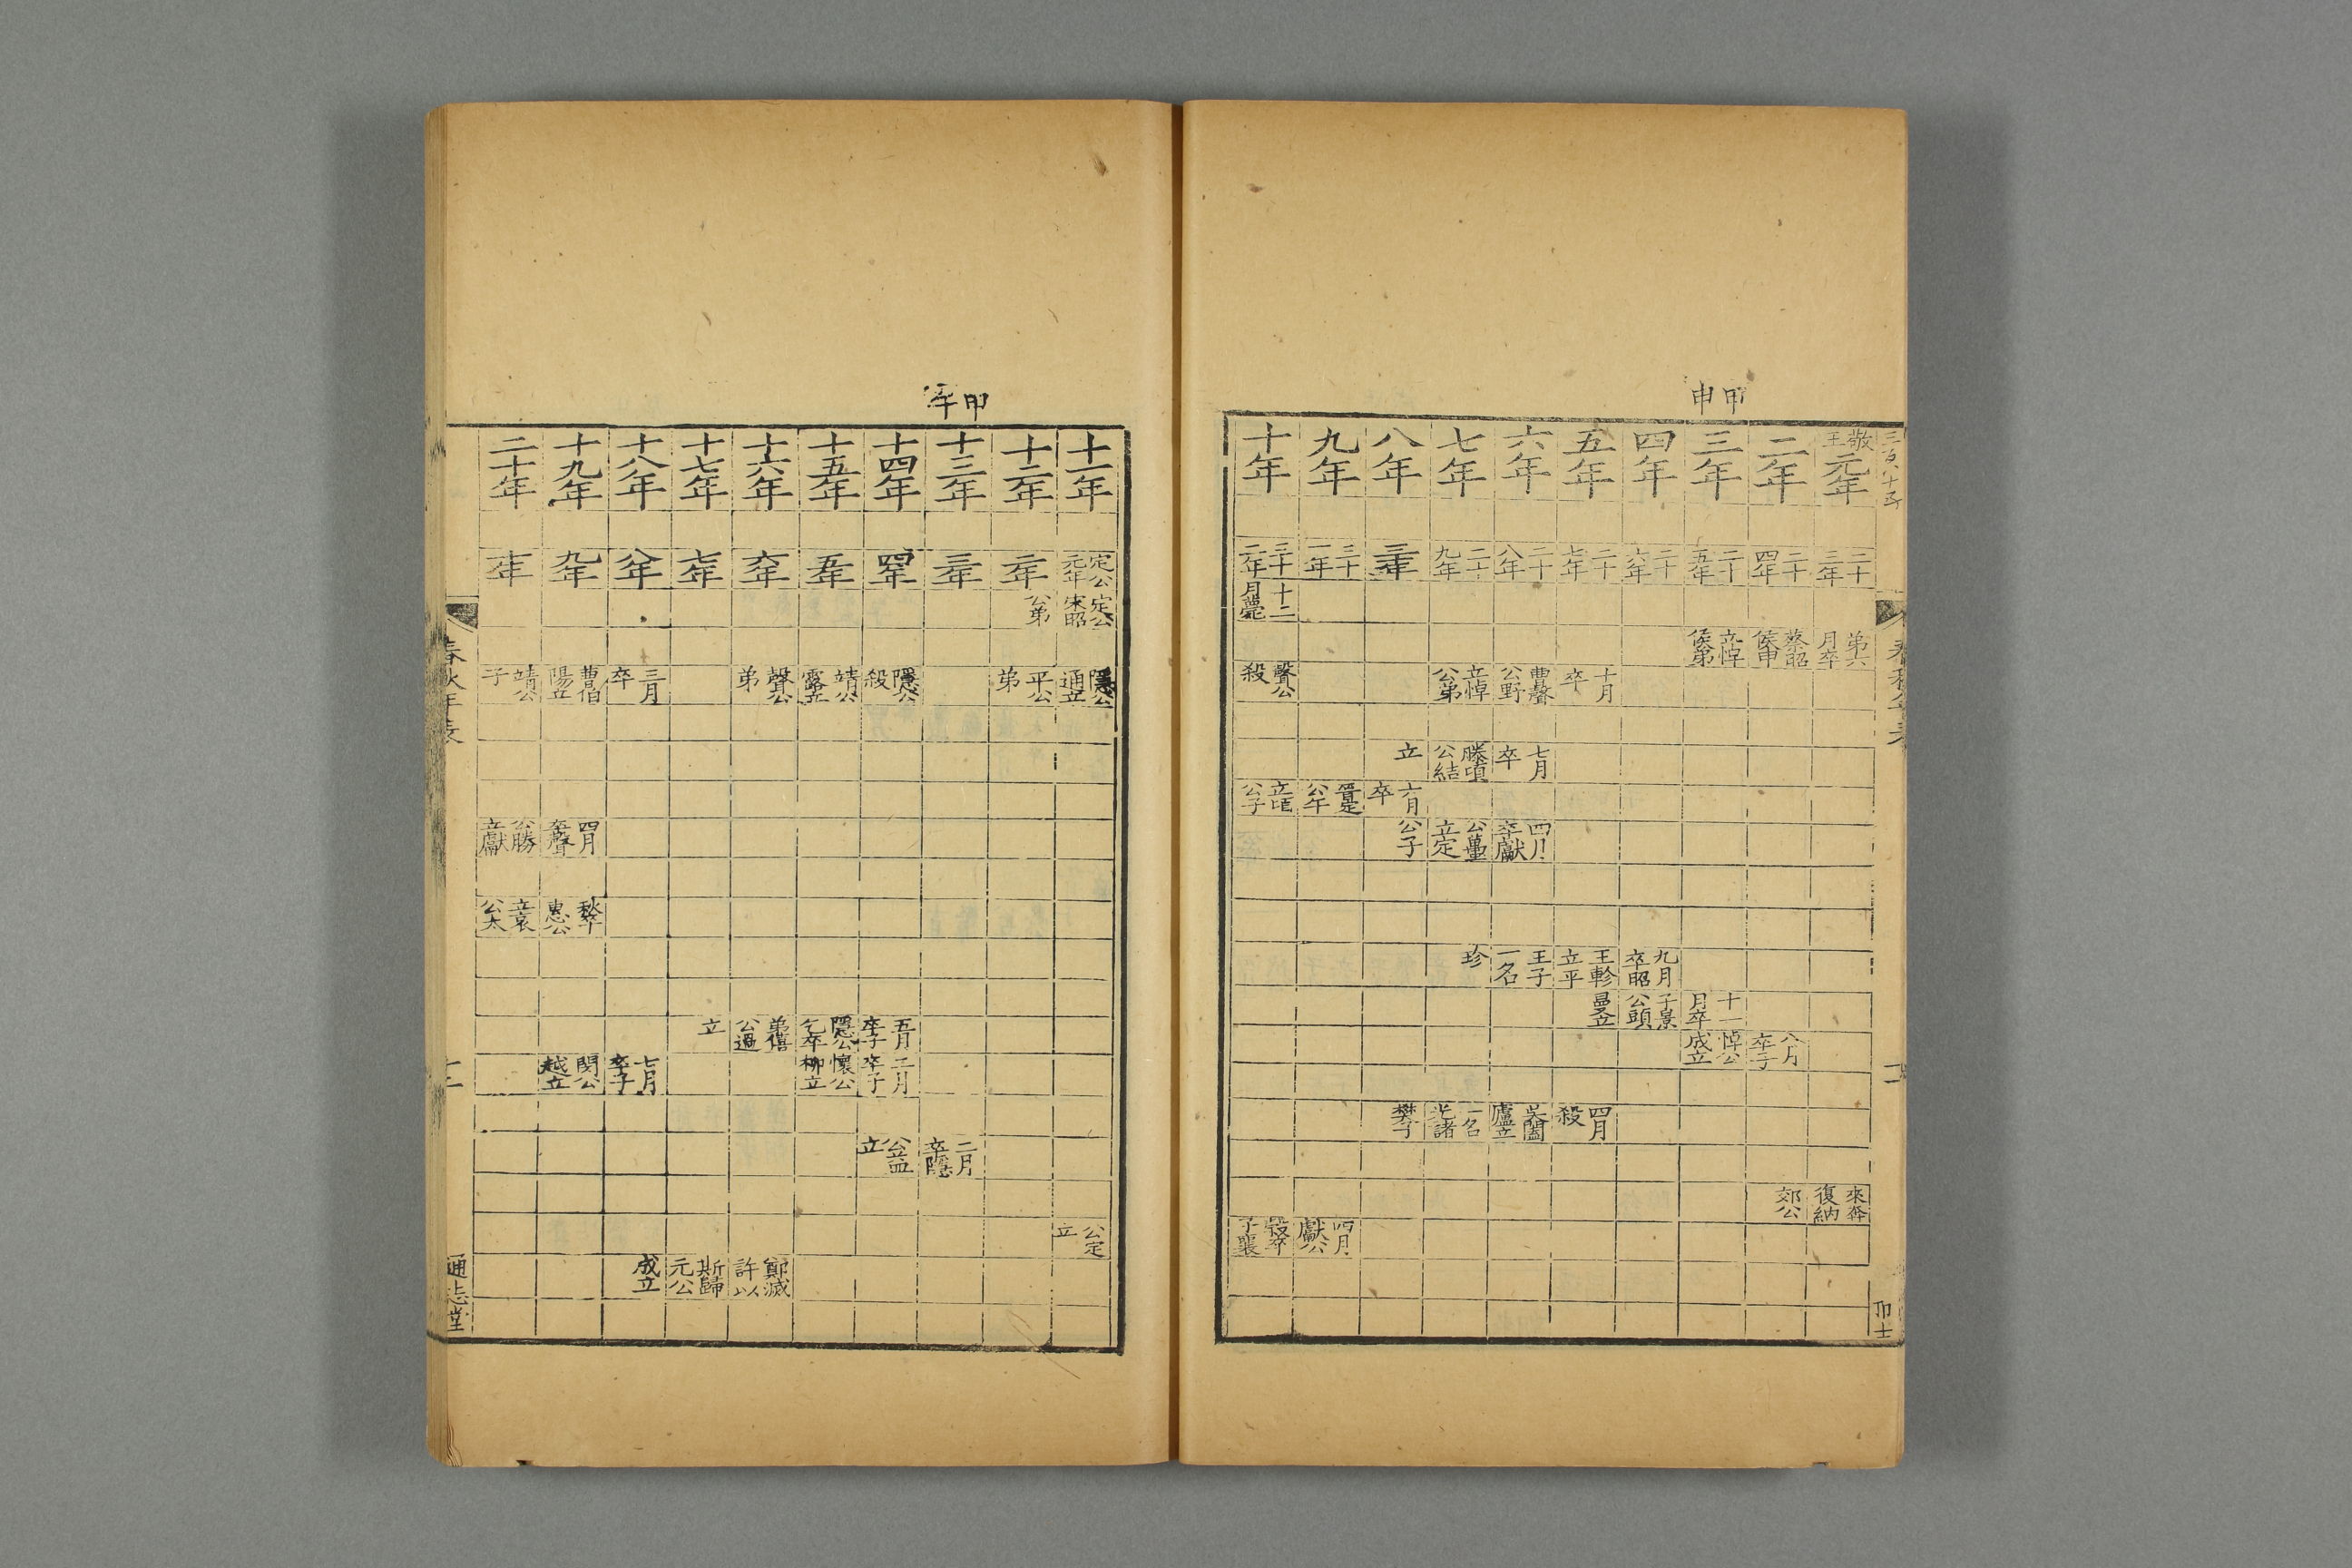 甲申
敬王元年
二年
三年
四年
五年
六年
七年
八年
九年
十年
二十三年
二十四年
二十五年
二十六年
二十七年
二十八年
二十九年
三十年
三十一年
三十二年
十二月薨
弟六月卒
蔡昭侯申
立悼侯弟
十月卒
曹聲公野
立悼公弟
聲公殺
七月卒
滕頃公結
立
六月卒
公午
公子
四月卒獻
公蠆立定
公子
九月卒昭
王軫立平
王子一名
珍
十一月卒
子景公頭
曼立
八月卒子
悼公成立
四月殺
吳闔廬立
一名光諸
樊子
來奔復納
郊公
四月獻公
卒
子襄
春秋年表
甲午
十一年
十二年
十三年
十四年
十五年
十六年
十七年
十八年
十九年
二十年
定公元年
二年
三年
四年
五年
六年
七年
八年
九年
十年
定公宋昭
公弟
隱公通立
平公弟
隱公殺
靖公露立
聲公弟
三月卒
曹伯陽立
靖公子
四月卒聲
公勝立獻
秋卒惠公
立哀公太
五月卒子
隱公乞卒
弟僖公過
立
二月卒子
懷公柳立
七月卒子
閔公越立
二月卒隱
公益立
公定立
鄭滅許以
斯歸元公
成立
春秋年表
通志堂